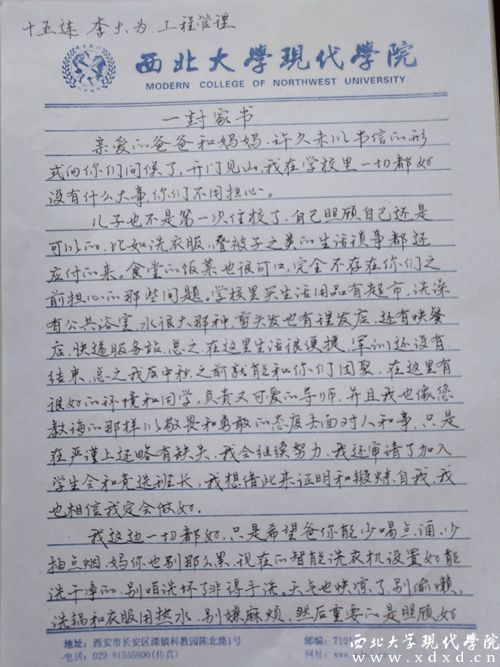 十五连 李大为 工程管理
西北大学现代学院
MODERN COLLEGE OF NORTHWEST UNIVERSITY
一封家书
亲爱的爸爸和妈妈,许久未以书信的形
式向你们问候了,开门见山,我在学校里一切都好
没有什么大事,你们不用担心。
儿子也不是第一次住校了,自己照顾自己还是
可以的,比如洗衣服,叠被子之类的生活琐事都还
应付的来。食堂的饭菜也很可口,完全不存在你们之
前担心的那些问题。学校里买生活用品有超市,洗澡
有公共浴室,水很大那种,剪头发也有理发店,还有快餐
店,快递服务站,总之,在这里生活很便捷,军训还没有
结束,总之我应中秋之前就能和你们团聚,在这里有
很好的环境和同学,负责又可爱的导师,并且我也像您
教诲的那样以敬畏和勇敢的态度去面对人和事,只是
在严谨上还略有缺失,我会继续努力,我还审请了加入
学生会和竞选班长,我想借此来证明和锻炼自我,我
也相信我定会做好。
我这边一切都好,只是希望爸你能少喝点酒,少
抽点烟,妈你也别那么累,现在的智能洗衣机设置好能
洗干净的,别咱洗坏了非得手洗。天气也快凉了,别偷懒,
洗锅和衣服用热水,别嫌麻烦,然后重要的是照顾好
地址:西安市长安区滦镇科教园陈北路1号
电话:029-81555800(传真)
邮编:710
网址:www.
西北大学现代学院
www.xdxd.cn